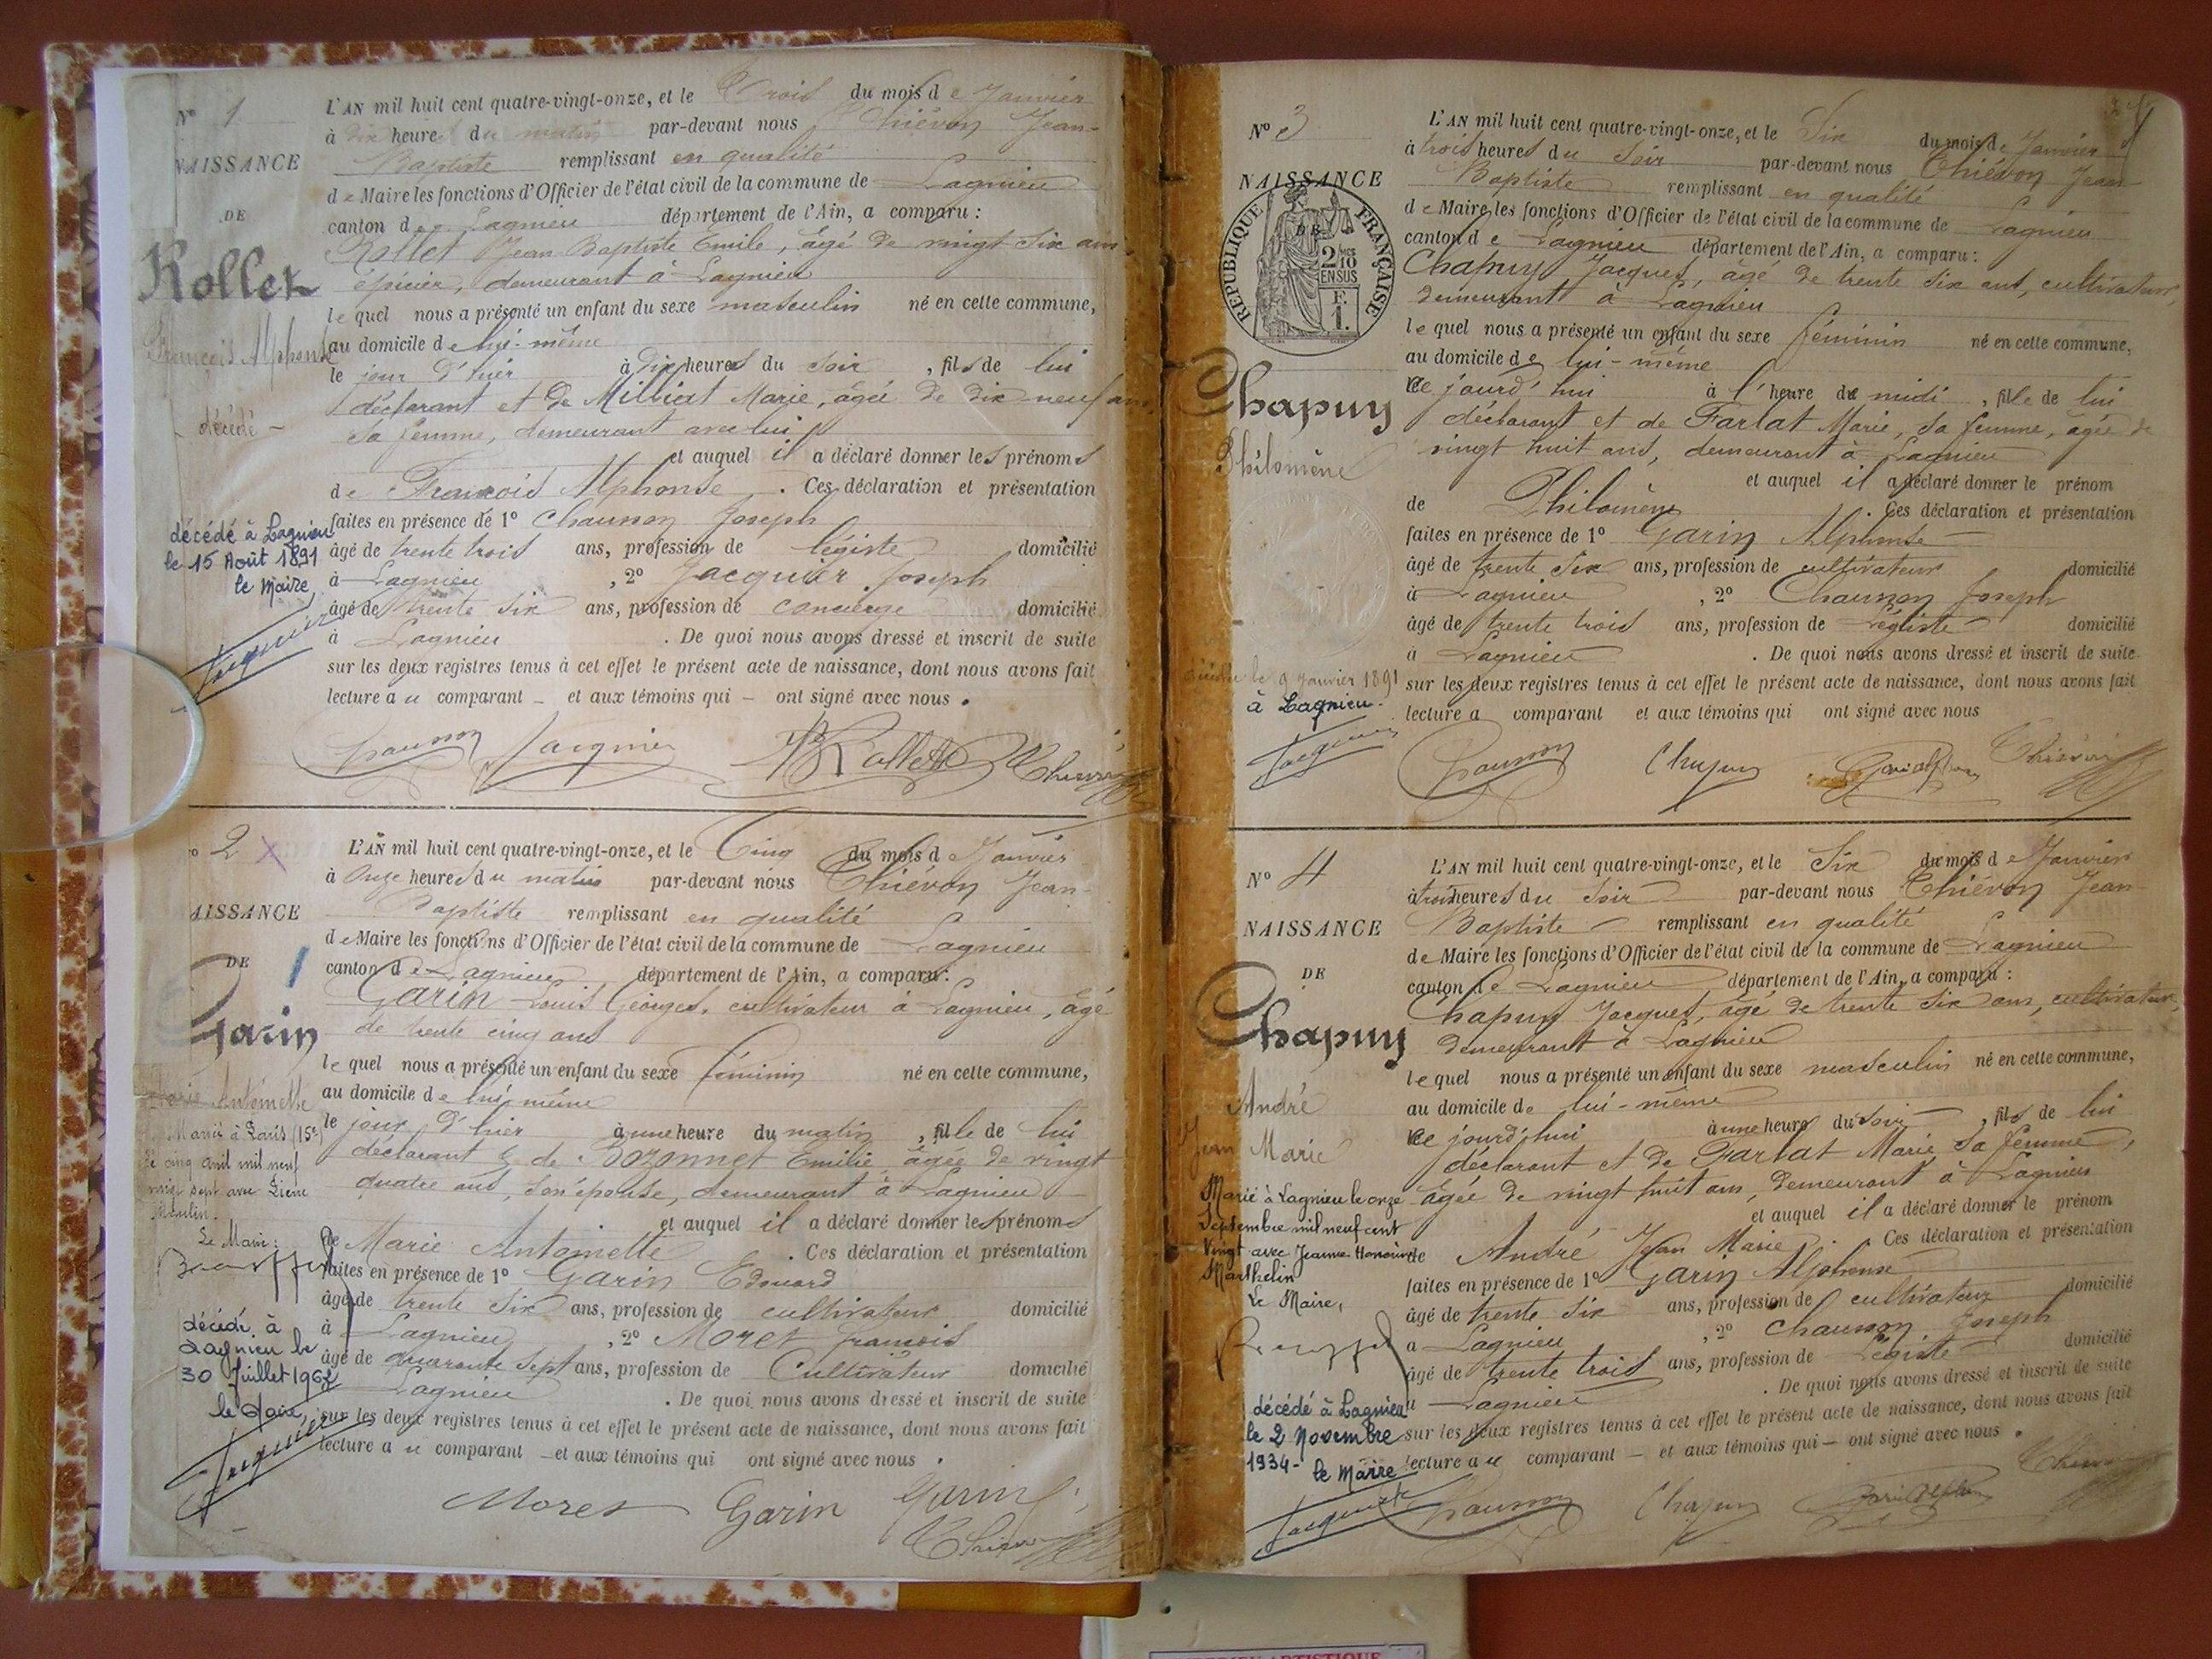 N° 1
NAISSANCE
DE
Rollet
François Alphonse
décédé
décédé à Lagnieu
le 15 Août 1891
le Maire,
L'AN mil huit cent quatre-vingt-onze, et le Trois du mois de Janvier
à dix heures du matin par-devant nous Thiévon Jean-
Baptiste remplissant en qualité
de Maire les fonctions d'Officier de l'état civil de la commune de Lagnieu
canton de Lagnieu département de l'Ain, a comparu :
Rollet Jean Baptiste Emile, âgé de vingt six ans
épicier, demeurant à Lagnieu
lequel nous a présenté un enfant du sexe masculin né en cette commune,
au domicile de lui-même
le jour d'hier à dix heures du soir, fils de lui
déclarant et de Milliat Marie, âgée de dix-neuf ans
sa femme, demeurant avec lui
et auquel il a déclaré donner les prénoms
de François Alphonse. Ces déclaration et présentation
faites en présence de 1° Chausson Joseph
âgé de trente trois ans, profession de légiste domicilié
à Lagnieu, 2° Jacquier Joseph
âgé de trente six ans, profession de concierge domicilié
à Lagnieu. De quoi nous avons dressé et inscrit de suite
sur les deux registres tenus à cet effet le présent acte de naissance, dont nous avons fait
lecture au comparant – et aux témoins qui – ont signé avec nous.
Chausson Jacquier Rollet Thiévon
N° 2
NAISSANCE
DE
Garin
Marie Antoinette
Marié à Paris (15e)
le cinq avril mil neuf
vingt sept avec Pierre
Moulin.
Le Maire :
décédé à
Lagnieu le
30 Juillet 1962
le Maire,
L'AN mil huit cent quatre-vingt-onze, et le Cinq du mois de Janvier
à Onze heures du matin par-devant nous Thiévon Jean-
Baptiste remplissant en qualité
de Maire les fonctions d'Officier de l'état civil de la commune de Lagnieu
canton de Lagnieu département de l'Ain, a comparu :
Garin Louis Georges, cultivateur à Lagnieu, âgé
de trente cinq ans
lequel nous a présenté un enfant du sexe féminin né en cette commune,
au domicile de lui même
le jour d'hier à une heure du matin, fille de lui
déclarant & de Bozonnet Emilie, âgée de vingt
quatre ans, son épouse, demeurant à Lagnieu
et auquel il a déclaré donner les prénoms
de Marie Antoinette. Ces déclaration et présentation
faites en présence de 1° Garin Edouard
âgé de trente six ans, profession de cultivateur domicilié
à Lagnieu, 2° Moret François
âgé de quarante sept ans, profession de Cultivateur domicilié
Lagnieu. De quoi nous avons dressé et inscrit de suite
sur les deux registres tenus à cet effet le présent acte de naissance, dont nous avons fait
lecture au comparant – et aux témoins qui ont signé avec nous.
Moret Garin Garin
Thiévon
N° 3
NAISSANCE
DE
RÉPUBLIQUE FRANÇAISE
2/10 EN SUS
F. 1.
Chapuy
Philomène
décédée le 9 janvier 1891
à Lagnieu.
L'AN mil huit cent quatre-vingt-onze, et le Six du mois de Janvier
à trois heures du Soir par-devant nous Thiévon Jean
Baptiste remplissant en qualité
de Maire les fonctions d'Officier de l'état civil de la commune de Lagnieu
canton de Lagnieu département de l'Ain, a comparu :
Chapuy Jacques, âgé de trente six ans, cultivateur,
demeurant à Lagnieu
lequel nous a présenté un enfant du sexe féminin né en cette commune,
au domicile de lui-même
ce jourd'hui à l'heure de midi, fille de lui
déclarant et de Farlat Marie, sa femme, âgée de
vingt huit ans, demeurant à Lagnieu
et auquel il a déclaré donner le prénom
de Philomène. Ces déclaration et présentation
faites en présence de 1° Garin Alphonse
âgé de trente six ans, profession de cultivateur domicilié
à Lagnieu, 2° Chausson Joseph
âgé de trente trois ans, profession de Légiste domicilié
à Lagnieu. De quoi nous avons dressé et inscrit de suite
sur les deux registres tenus à cet effet le présent acte de naissance, dont nous avons fait
lecture a comparant et aux témoins qui ont signé avec nous
Chausson Chapuy Thiévon
N° 4
NAISSANCE
DE
Chapuy
André
Jean Marie
Marié à Lagnieu le onze
Septembre mil neuf cent
vingt avec Jeanne Honorine
Marthelin
Le Maire,
décédé à Lagnieu
le 2 Novembre
1934 -
le Maire
L'AN mil huit cent quatre-vingt-onze, et le Six du mois de Janvier
à trois heures du Soir par-devant nous Thiévon Jean-
Baptiste remplissant en qualité
de Maire les fonctions d'Officier de l'état civil de la commune de Lagnieu
canton de Lagnieu département de l'Ain, a comparu :
Chapuy Jacques, âgé de trente six ans, cultivateur,
demeurant à Lagnieu
lequel nous a présenté un enfant du sexe masculin né en cette commune,
au domicile de lui-même
ce jourd'hui à une heure du soir, fils de lui
déclarant et de Farlat Marie sa femme,
âgée de vingt huit ans, demeurant à Lagnieu
et auquel il a déclaré donner le prénom
de André Jean Marie. Ces déclaration et présentation
faites en présence de 1° Garin Alphonse
âgé de trente six ans, profession de cultivateur domicilié
a Lagnieu, 2° Chausson Joseph
âgé de trente trois ans, profession de Légiste domicilié
à Lagnieu. De quoi nous avons dressé et inscrit de suite
sur les deux registres tenus à cet effet le présent acte de naissance, dont nous avons fait
lecture au comparant – et aux témoins qui – ont signé avec nous.
Chausson Chapuy Thiévon